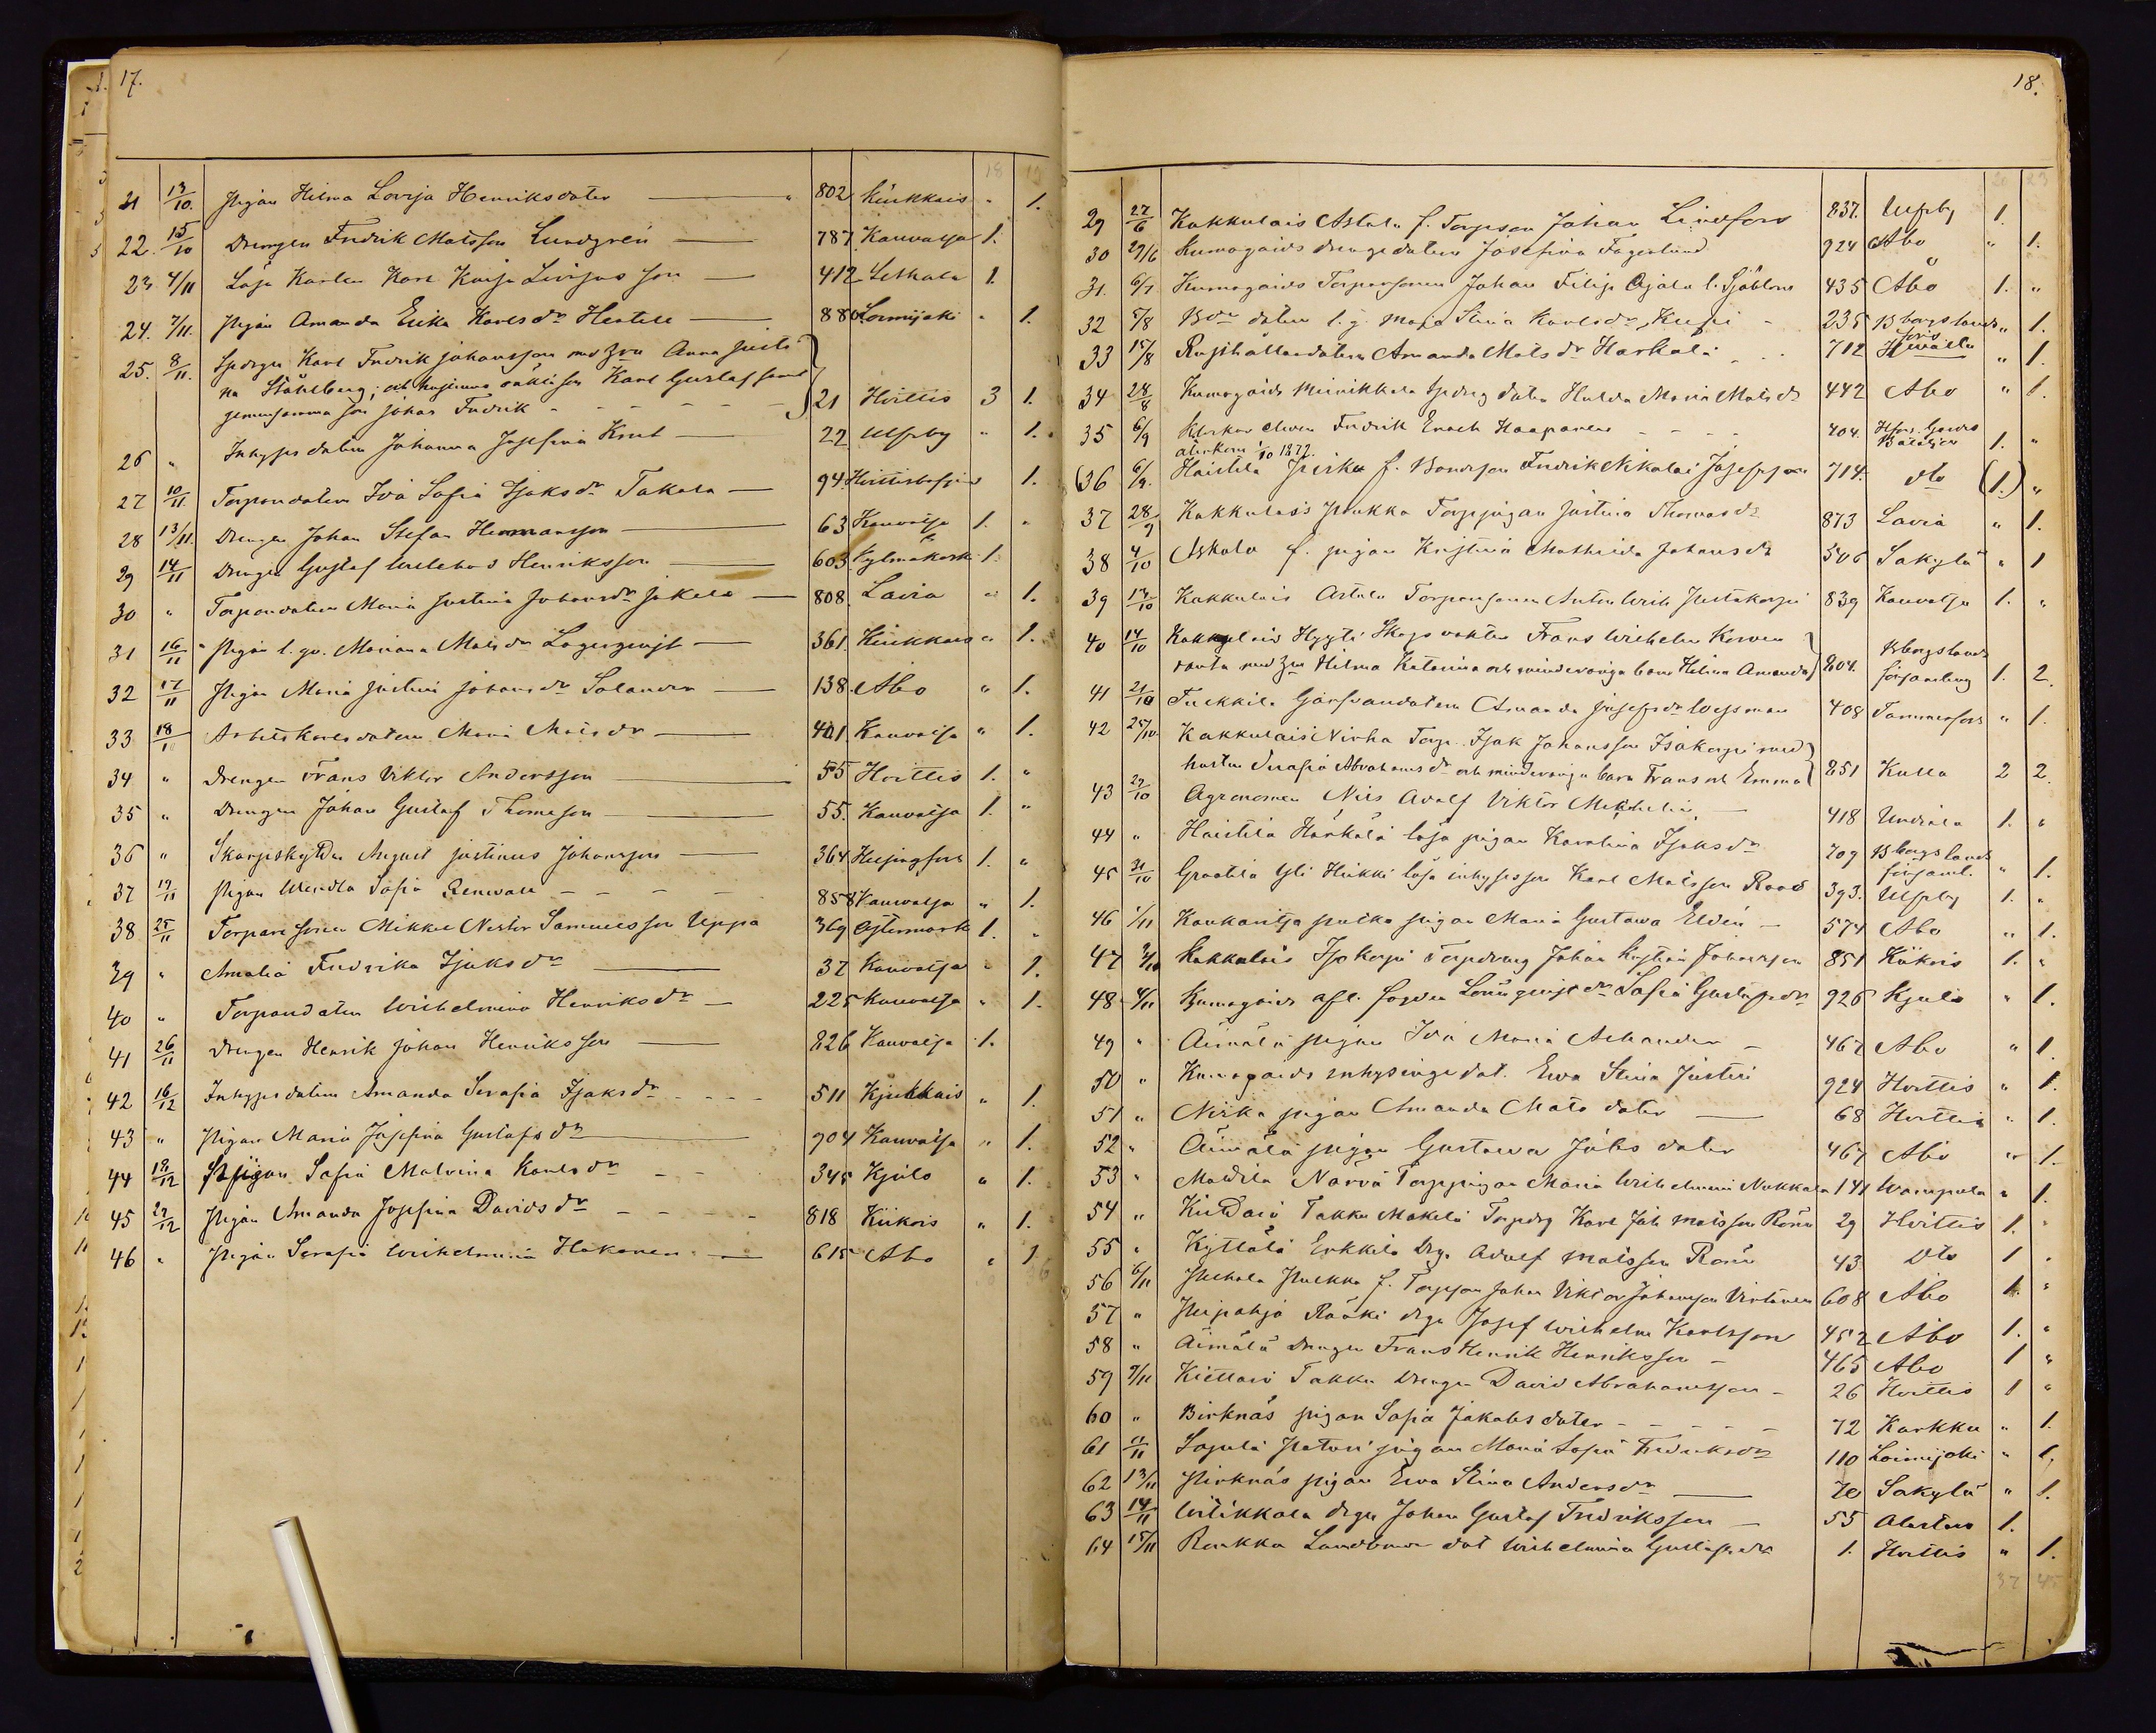 17.
18 19
21 13/10. Pigan Hilma Lovisa Henriksdoter 802 Kiukkais " 1.
22. 15/10 Drengen Fredrik Matsson Lundgren 787. Kauvatsa 1.
23 4/11 Lösa Karlen Karl Kaisa Son 412 Letkala 1.
24. 7/11. Pigan Amanda Erika Karlsdr Hertell 880 Loimijoki " 1.
25. 8/11. Karl Fredrik Johansson med Anna Justi
na Ståhlberg; och hustruns oäkta son Karl Gustaf samt
gemensamma son Johan Fredrik 21 Hvittis 3 1.
26 " Inhyses datern Johanna Josefina Knut 22 Ulfsby " 1.
27 10/11. Torparedatern Iva Sofia Isaksdr Takala 94. 1.
28 13/11. Drengen Johan Stefan Hermansson 63 Kauvatsa 1. "
29 14/11 Drengen Gustaf Henriksson 603. Kylmäkoski 1.
30 " Torparedatern Maria Justina Johansdr Jokela 808. Lavia " 1.
31 16/11 Pigan l. gv. Mariana Matsdr Lagerqvist 361. Kiukkais " 1.
32 17/11 Pigan Maria Justina Johansdr Solander 138. Åbo " 1.
33 18/11 Arbetskarlsdatern Maria Matsdr 401. Kauvatsa " 1.
34 " Drengen Frans Viktor Andersson 55 Hvittis 1. "
35 " Drengen Johan Gustaf Thomasson 55. Kauvatsa 1. "
36 " Skarpskytten August Justinus Johansson 364 Helsingfors 1. "
37 19/11 Pigan Wendla Sofia Renwall 858 Kauvatsa " 1.
38 25/11 Torparesonen Mikkel Nestor Samuelsson Uppa 369 Östermark 1. "
39 " Amalia Fredrika Isaksdr 37 Kauvatsa " 1.
40 " Torparedatern Wilhelmina Henriksdr 225 Kauvatsa " 1.
41 26/11 Drengen Henrik Johan Henriksson 826 Kauvatsa 1.
42 16/12 Inhyses datern Amanda Serafia Isaksdr 511 Kjukkais " 1.
43 " Pigan Maria Josefina Gustafsdr 904 Kauvatsa " 1.
44 18/12 Pigan Sofia Malvina Karlsdr 345 Kjulo " 1.
45 27/12 Pigan Amanda Josefina Davidsdr 818 Kiikois " 1.
46 " Pigan Serafia Wilhelmina Hakanen 615 Åbo " 1.
36
18.
29 27/6 Kakkulais Astala f. Torpson Johan Lindfors 837. Ulfsby 1.
30 29/6 Kumogårds drengedatern Josefina Fagerlund 924 Åbo " 1.
31. 6/7 Kumogårds Torparsonen Johan Filip Ojala l. Sjöblom 435 Åbo 1. "
32 5/8 datern l. g. Maja Stina Karlsdr 235 B borgs lands " 1.
33 15/8 Rusthållardatern Amanda Matsdr Harkälä 712 " 1.
34 28/8 Kumogårds Meinikkala datern Hulda Maria Matsdr 442 Åbo " 1.
35 6/9 Fredrik Enoch Haapanen 404. Hfors. Gardes Bataljon 1. "
återkom 1/10 1877.
(36 6/9. Haistila Pirka f. Bondeson Fredrik Nikolai Josefsson 714. dto (1.) "
37 28/9 Kakkulais Torppigan Justina Thomasdr 873 Lavia " 1.
38 4/10 Askola f. pigan Kristina Mathilda Johansdr 506 Säkylä " 1
39 13/10 Kakkulais Astala Torparsonen Anton Wilh 839 Kauvatsa 1. "
40 14/10 Kakkulais Hyyti Skogsvakten Frans Wilhelm Korven
ranta med Hilma Katarina och minderåriga barn Hilma Amanda 804. B borgs lands församling 1. 2.
41 21/10 Tuckkila Gärfvardatern Amanda Josefsdr Wessman 408 Tammerfors " 1.
42 25/10 Kakkulais Nirha Torp. Isak Johansson Isokorpi med
hustru Serafia Abrahamsdr och minderåriga barn Frans och Emma 851 Kulla 2 2.
43 29/10 Agronomen Nils Adolf Viktor 418 Urdiala 1. "
44 " Haistila Härkälä lösa pigan Karolina Isaksdr 709 B borgs lands församl. " 1.
45 31/10 Graatila Yli Heikki lösa inhysesson Karl Matsson Roos 393. Ulfsby 1. "
46 1/11 Kaukaritsa pigan Maria Gustava Eldén 574 Åbo " 1.
47 2/11 Kakkulais Isokorpi Torpdreng Johan Kristian Johansson 851 Kiikois 1. "
48 4/11 Kumogårds afl. Lönnqvist dr Sofia Gustafsdr 926 Kjulo " 1.
49 " Äimälä pigan Iva Maria Achander 467 Åbo " 1.
50 " Kumogårds inhysinge dat. Ewa Stina Justen 924 Hvittis " 1.
51 " Nirka pigan Amanda Mats doter 68 Hvittis " 1.
52 " Äimälä pigan Gustava Jakobs doter 467 Åbo " 1.
53 " Mattila Narva Torppigan Maria Wilhelmina Nukkala 141 Wampula " 1.
54 " Takku Mäkelä Karl Joh. Matsson Rönn 29 Hvittis 1. "
55 " Kyttälä Erkkilä Drg. Adolf Matsson Rönn 43 Dto 1 "
56 6/11 f. Torpson Johan Viktor Johansson Virtanen 608 Åbo 1. "
57 " Peipohja Rääki drgn Josef Wilhelm Karlsson 452 Åbo 1. "
58 " Äimälä Drengen Frans Henrik Henriksson 465 Åbo 1 "
59 7/11 Takku Drengen David Abrahamsson 26 Hvittis 1 "
60 " Birknäs pigan Sofia Jakobs doter 72 Karkku " 1.
61 11/11 pigan Maria Sofia Fredriksdr 110 Loimijoki " 1.
62 13/11 Pirknäs pigan Ewa Stina Andersdr 70 Säkylä " 1.
63 14/11 Wilikkala drgn Johan Gustaf Fredriksson 55 Alastaro 1.
64 15/11 Raukka Landbonde dat Wilhelmina Gustafsdr 1. Hvittis " 1.
37 45